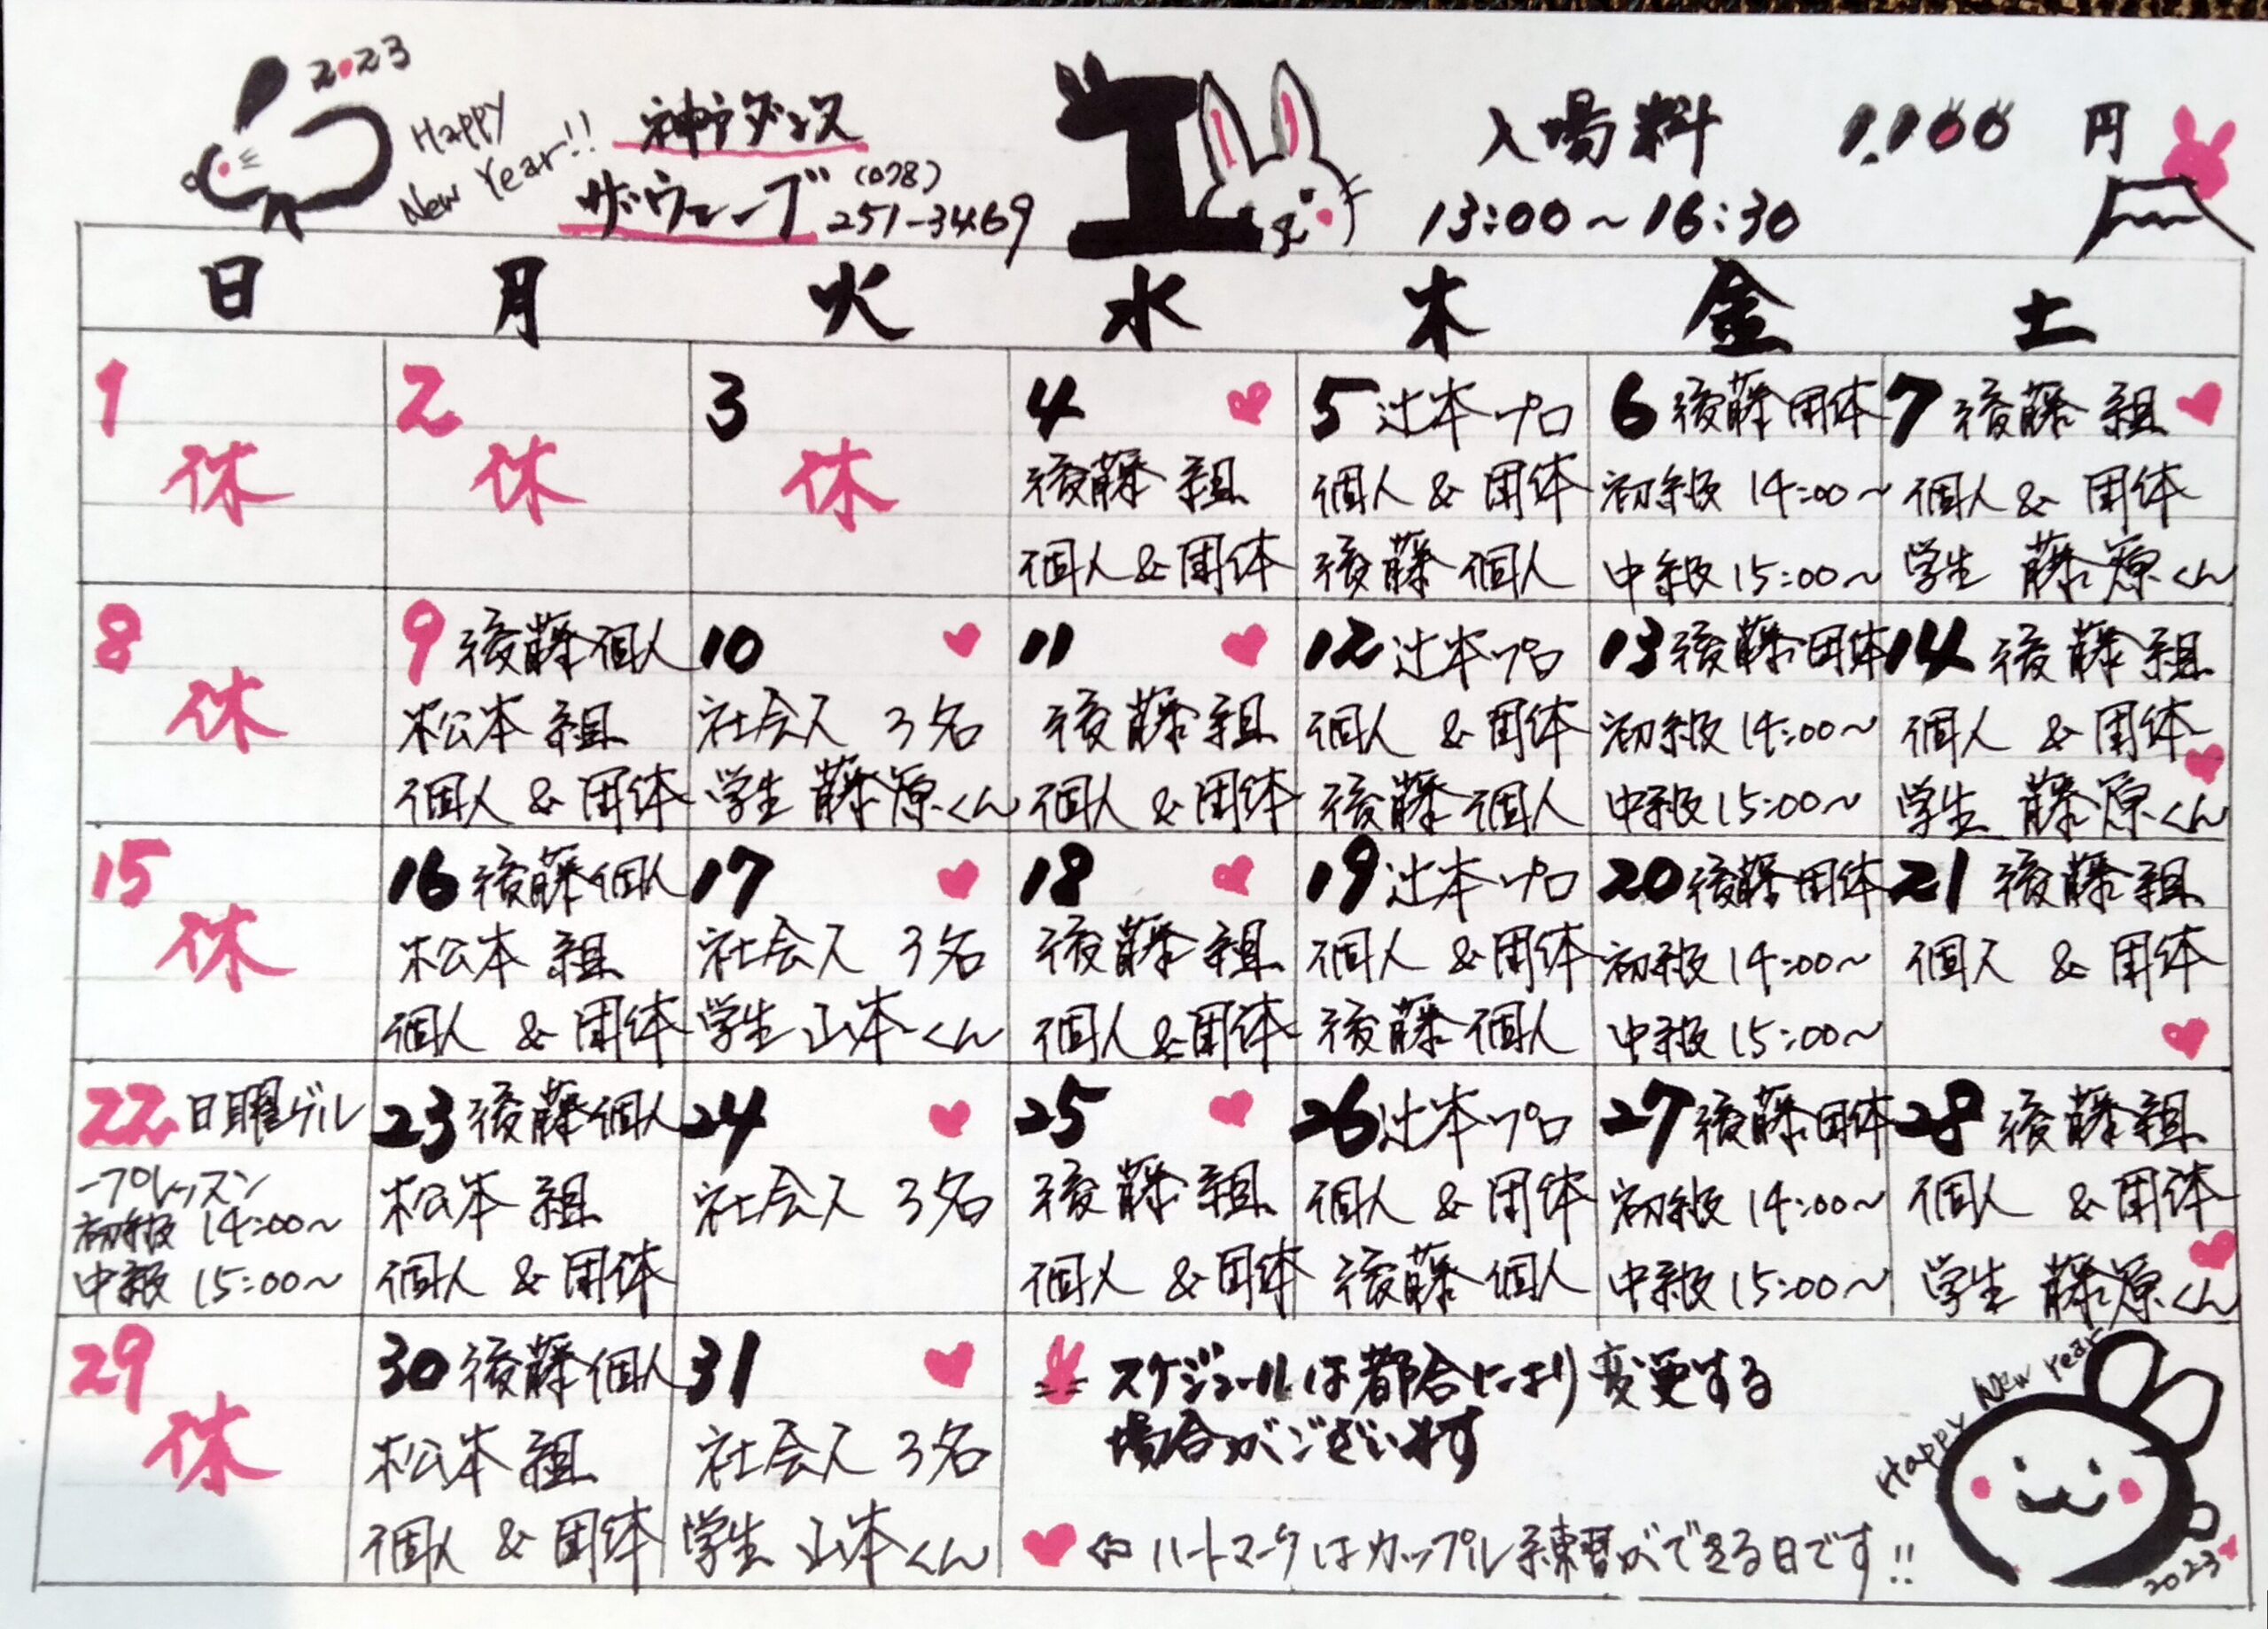 2023
Happy
New Year!!
神戸ダンス
ザ・ウェーブ (078)
251-3469
1
入場料 1,100 円
13:00~16:30
日 月 火 水 木 金 土
1
休
2
休
3
休
4
後藤 組
個人 & 団体
5 辻本プロ
個人 & 団体
後藤 個人
6 後藤団体
初級 14:00~
中級 15:00~
7 後藤 組
個人 & 団体
学生 藤原くん
8
休
9 後藤個人
松本 組
個人 & 団体
10
社会人 3名
学生 藤原くん
11
後藤 組
個人 & 団体
12 辻本プロ
個人 & 団体
後藤 個人
13 後藤団体
初級 14:00~
中級 15:00~
14 後藤 組
個人 & 団体
学生 藤原くん
15
休
16 後藤個人
松本 組
個人 & 団体
17
社会人 3名
学生 山本くん
18
後藤 組
個人 & 団体
19 辻本プロ
個人 & 団体
後藤 個人
20 後藤団体
初級 14:00~
中級 15:00~
21 後藤 組
個人 & 団体
22 日曜グル
ープレッスン
初級 14:00~
中級 15:00~
23 後藤個人
松本 組
個人 & 団体
24
社会人 3名
25
後藤 組
個人 & 団体
26 辻本プロ
個人 & 団体
後藤 個人
27 後藤団体
初級 14:00~
中級 15:00~
28 後藤 組
個人 & 団体
学生 藤原くん
29
休
30 後藤個人
松本 組
個人 & 団体
31
社会人 3名
学生 山本くん
スケジュールは都合により変更する
場合がございます
♥ ⇦ ハートマークはカップル練習ができる日です!!
Happy New Year
2023